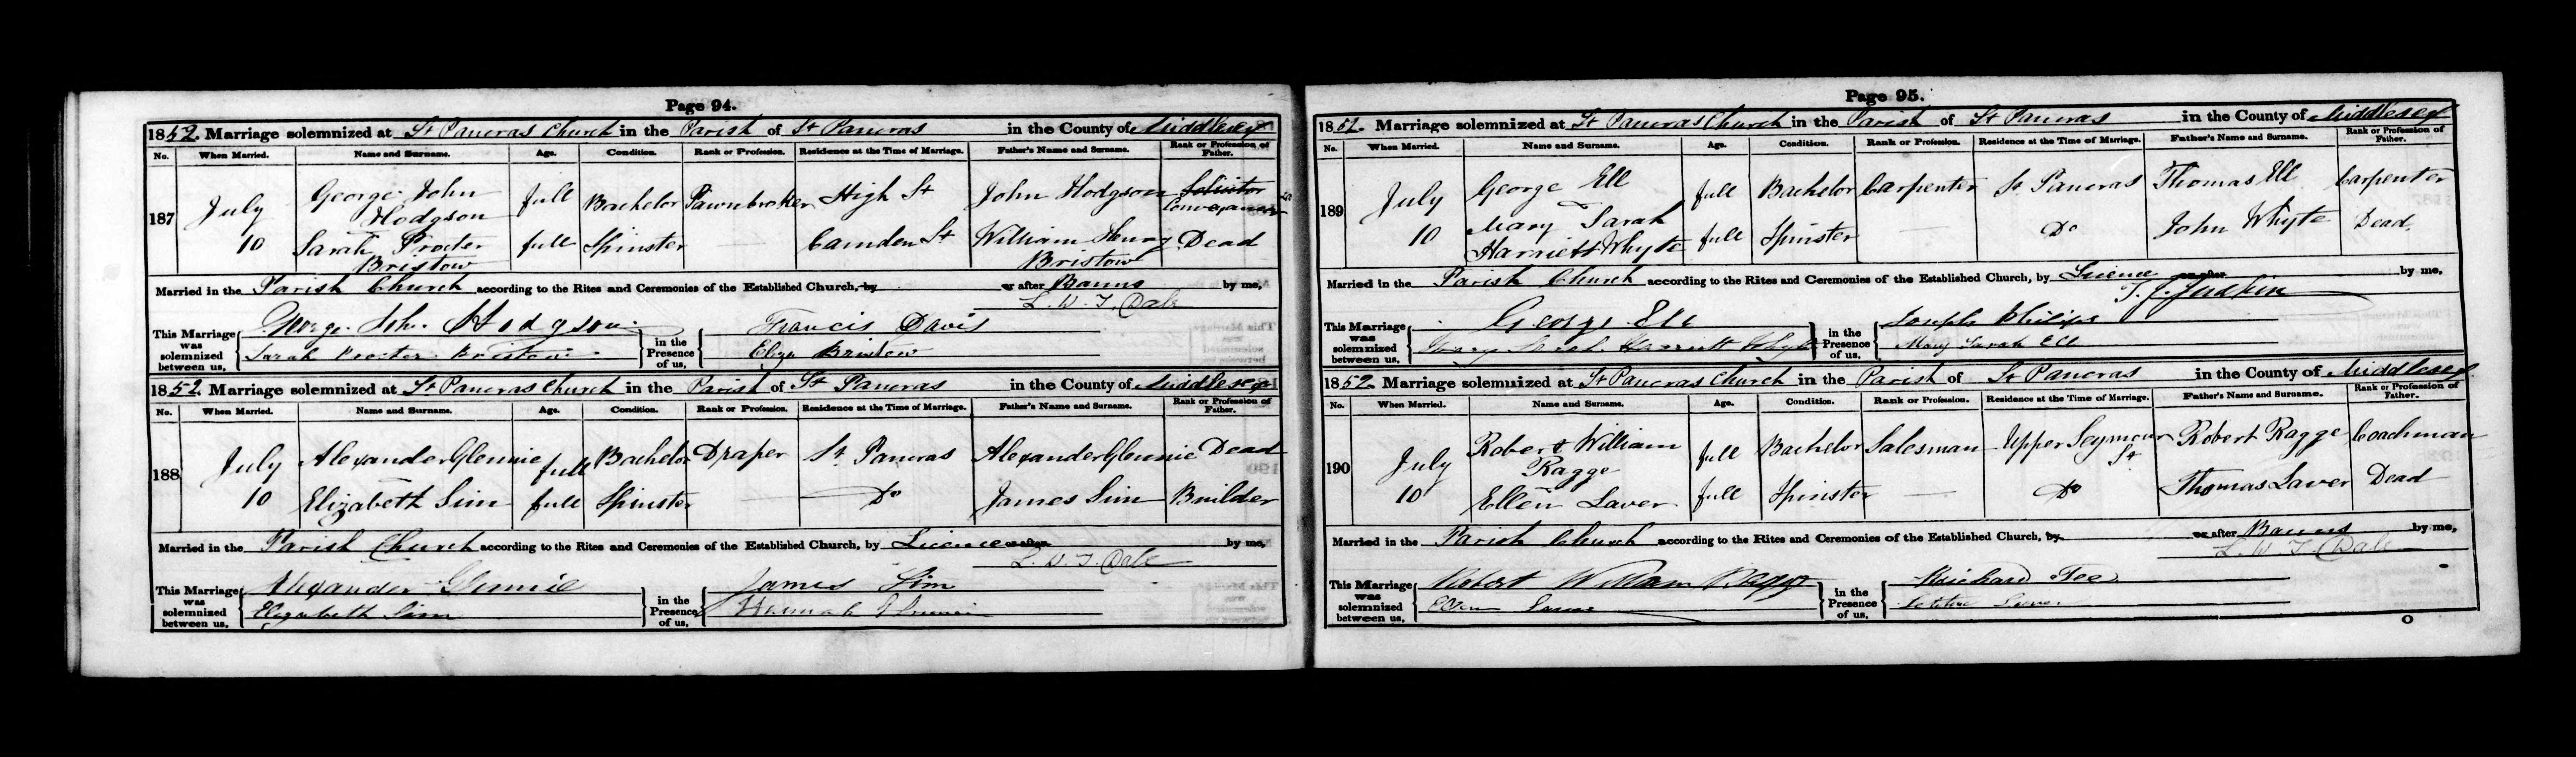 Page 94.
1852. Marriage solemnized at St Pancras Church in the Parish of St Pancras in the County of Middlesex
No. When Married. Name and Surname. Age. Condition. Rank or Profession. Residence at the Time of Marriage. Father's Name and Surname. Rank or Profession of Father.
187 July 10 George John Hodgson full Bachelor Pawnbroker High St John Hodgson Solicitor Conveyancer
Sarah Procter Bristow full Spinster Camden St William Henry Bristow Dead
Married in the Parish Church according to the Rites and Ceremonies of the Established Church, by or after Banns by me,
L. W. T. Dale
This Marriage was solemnized between us, George John Hodgson in the Presence of us, Francis Davis
Sarah Procter Bristow Eliza Bristow
1852. Marriage solemnized at St Pancras Church in the Parish of St Pancras in the County of Middlesex
No. When Married. Name and Surname. Age. Condition. Rank or Profession. Residence at the Time of Marriage. Father's Name and Surname. Rank or Profession of Father.
188 July 10 Alexander Glennie full Bachelor Draper St Pancras Alexander Glennie Dead
Elizabeth Sim full Spinster Do James Sim Builder
Married in the Parish Church according to the Rites and Ceremonies of the Established Church, by Licence or after by me,
L. W. T. Dale
This Marriage was solemnized between us, Alexander Glennie in the Presence of us, James Sim
Elizabeth Sim Hannah Glennie
Page 95.
1852. Marriage solemnized at St Pancras Church in the Parish of St Pancras in the County of Middlesex
No. When Married. Name and Surname. Age. Condition. Rank or Profession. Residence at the Time of Marriage. Father's Name and Surname. Rank or Profession of Father.
189 July 10 George Ell full Bachelor Carpenter St Pancras Thomas Ell Carpenter
Mary Sarah Harriett Whyte full Spinster Do John Whyte Dead.
Married in the Parish Church according to the Rites and Ceremonies of the Established Church, by Licence or after by me,
T. J. Judkin
This Marriage was solemnized between us, George Ell in the Presence of us, Joseph Philips
Mary Sarah Harriett Whyte Mary Sarah Ell
1852. Marriage solemnized at St Pancras Church in the Parish of St Pancras in the County of Middlesex
No. When Married. Name and Surname. Age. Condition. Rank or Profession. Residence at the Time of Marriage. Father's Name and Surname. Rank or Profession of Father.
190 July 10 Robert William Ragge full Bachelor Salesman Upper Seymour St Robert Ragge Coachman
Ellen Laver full Spinster Do Thomas Laver Dead
Married in the Parish Church according to the Rites and Ceremonies of the Established Church, by or after Banns by me,
L. W. T. Dale
This Marriage was solemnized between us, Robert William Ragge in the Presence of us,
Ellen Laver
O